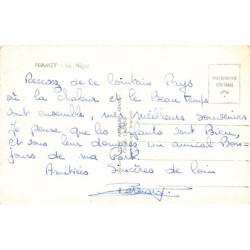 Recevez de ce lointain Pays
où la Chaleur et le Beau temps
sont ensemble, mes meilleurs souvenirs
Je pense que les enfants sont Bien,
et vous leur donnez un amical Bon-
jours de ma Part.
Amitiées Sincères de loin